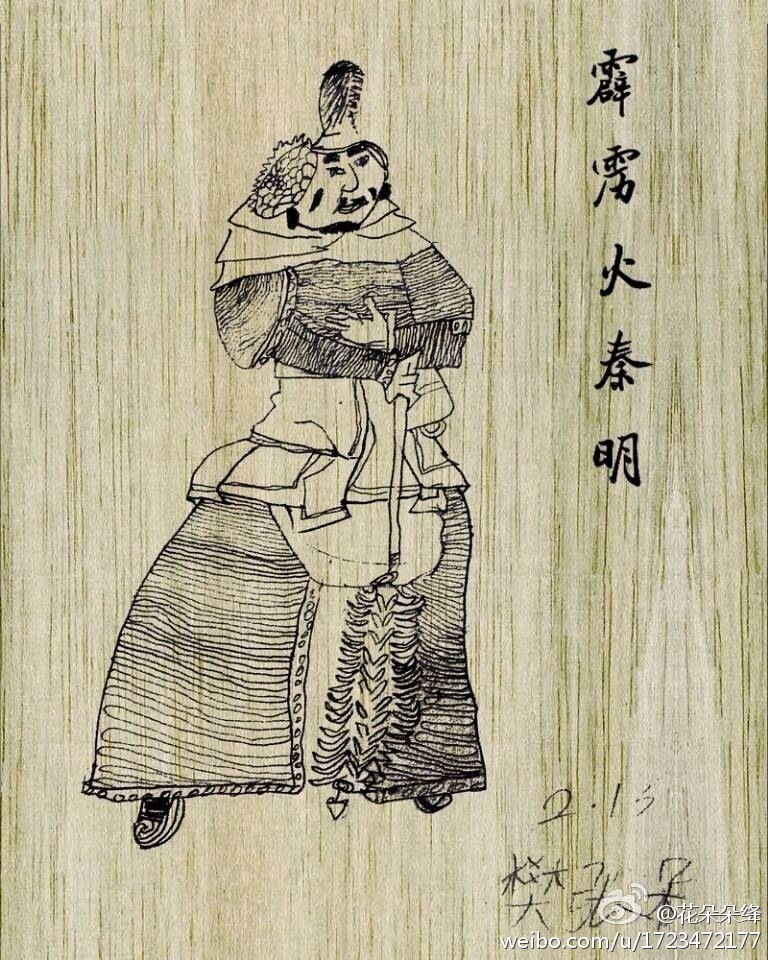 霹雳火秦明
@花朵朵绛
weibo.com/u/1723472177